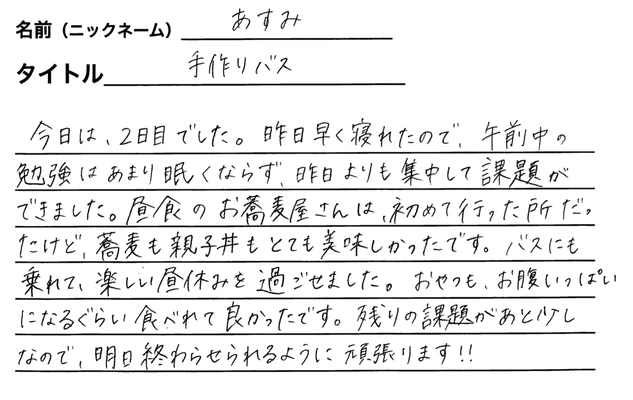 名前（ニックネーム） あすみ
タイトル 手作りバス
今日は、2日目でした。昨日早く寝れたので、午前中の
勉強はあまり眠くならず、昨日よりも集中して課題が
できました。昼食のお蕎麦屋さんは、初めて行った所だっ
たけど、蕎麦も親子丼もとても美味しかったです。バスにも
乗れて、楽しい昼休みを過ごせました。おやつも、お腹いっぱい
になるぐらい食べれて良かったです。残りの課題があと少し
なので、明日終わらせられるように頑張ります!!